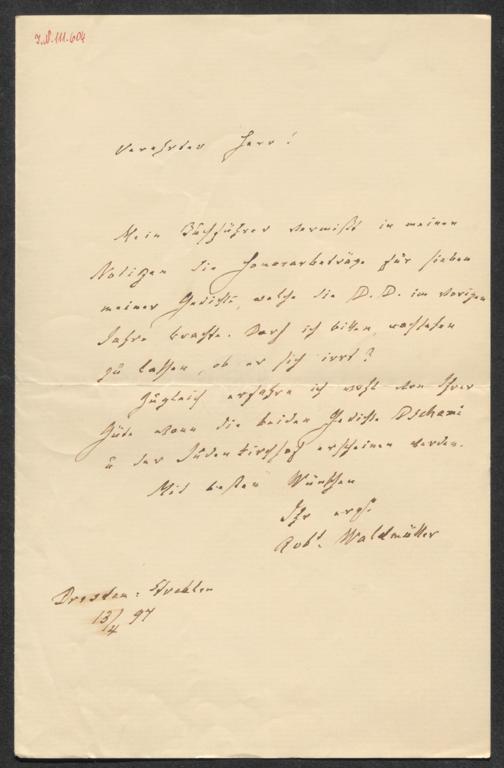 I.N. 111.604
Verehrter Herr!
Mein Buchführer vermißt in meinen
Notizen die Honorarbeträge für sieben
meiner Gedichte, welche die D. D. im vorigen
Jahre brachte. Darf ich bitten, nachsehen
zu lassen, ob er sich irrt?
Zugleich erfahre ich wohl von Ihrer
Güte wann die beiden Gedichte Dschami
u der Judenkirchhof erscheinen werden.
Mit besten Wünschen
Ihr ergb.
Robt. Waldmüller
Dresden-Strehlen
13/4 97